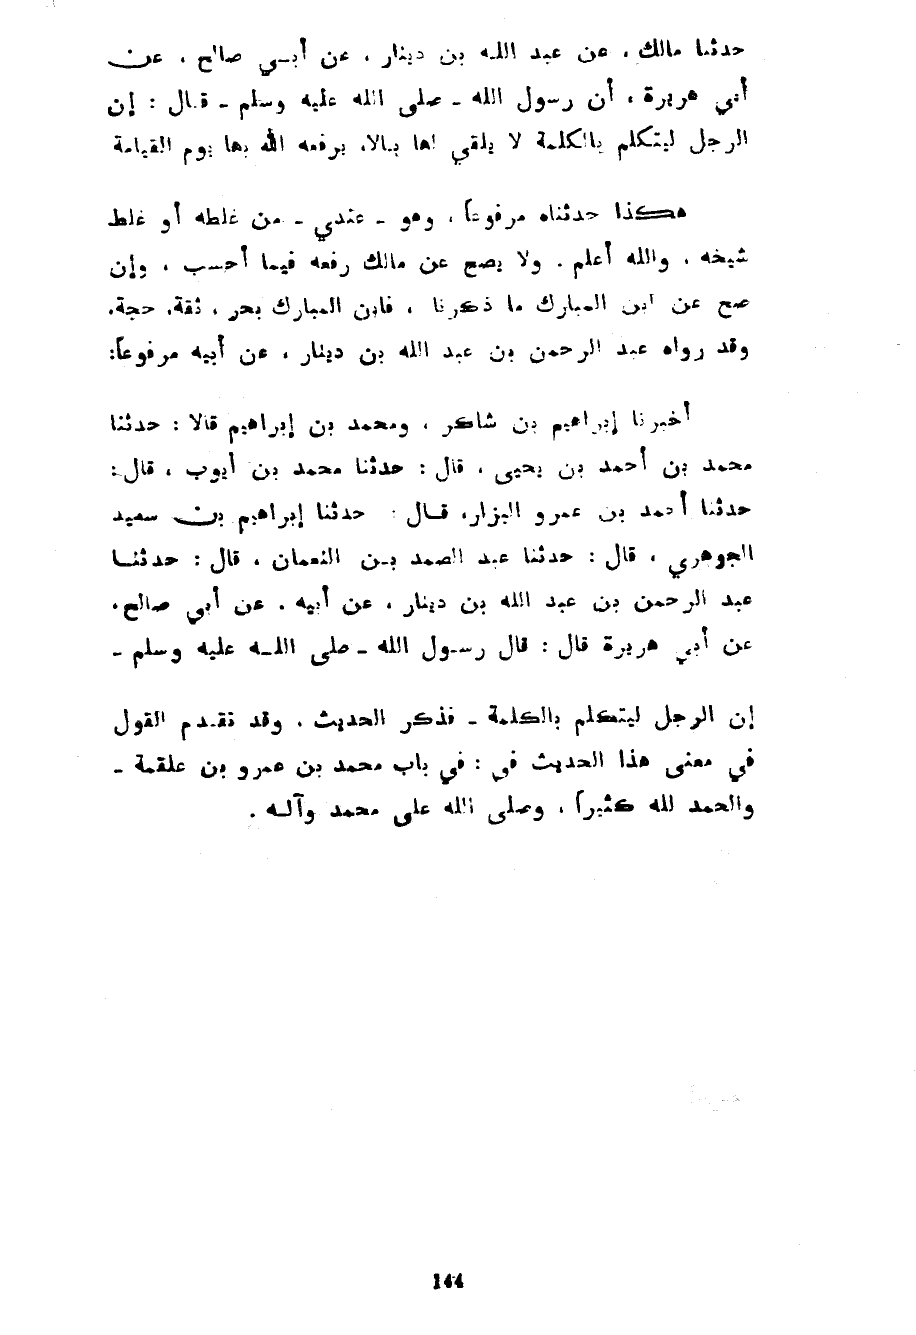 حدثنا مالك ، عن عبد الله بن دينار ، عن أبي صالح ، عن
أبي هريرة ، أن رسول الله ـ صلى الله عليه وسلم ـ قال : إن
الرجل ليتكلم بالكلمة لا يلقي لها بالا، يرفعه الله بها يوم القيامة
هكذا حدثناه مرفوعاً ، وهو ـ عندي ـ من غلطه أو غلط
شيخه ، والله أعلم . ولا يصح عن مالك رفعه فيما أحسب ، وإن
صح عن ابن المبارك ما ذكرنا ، فابن المبارك بحر ، ثقة، حجة،
وقد رواه عبد الرحمن بن عبد الله بن دينار ، عن أبيه مرفوعاً:
أخبرنا إبراهيم بن شاكر ، ومحمد بن إبراهيم قالا : حدثنا
محمد بن أحمد بن يحيى ، قال : حدثنا محمد بن أيوب ، قال :
حدثنا أحمد بن عمرو البزار، قال : حدثنا إبراهيم بن سعيد
الجوهري ، قال : حدثنا عبد الصمد بن النعمان ، قال : حدثنا
عبد الرحمن بن عبد الله بن دينار ، عن أبيه . عن أبي صالح،
عن أبي هريرة قال : قال رسول الله ـ صلى الله عليه وسلم ـ
إن الرجل ليتكلم بالكلمة ـ فذكر الحديث . وقد تقدم القول
في معنى هذا الحديث في : في باب محمد بن عمرو بن علقمة ـ
والحمد لله كثيراً ، وصلى الله على محمد وآله .
144